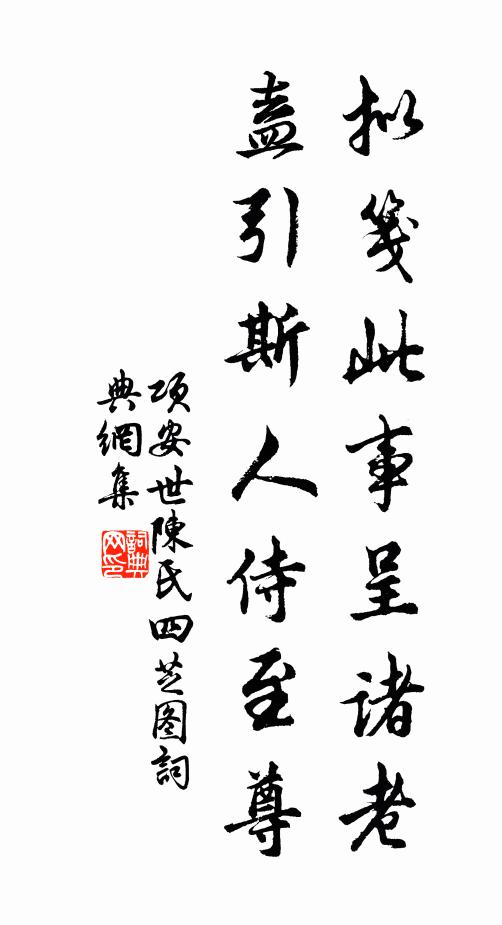 拟箋此事呈諸老
盍引斯人侍至尊
项安世陳氏四芝图詞
典網集
詞典网印